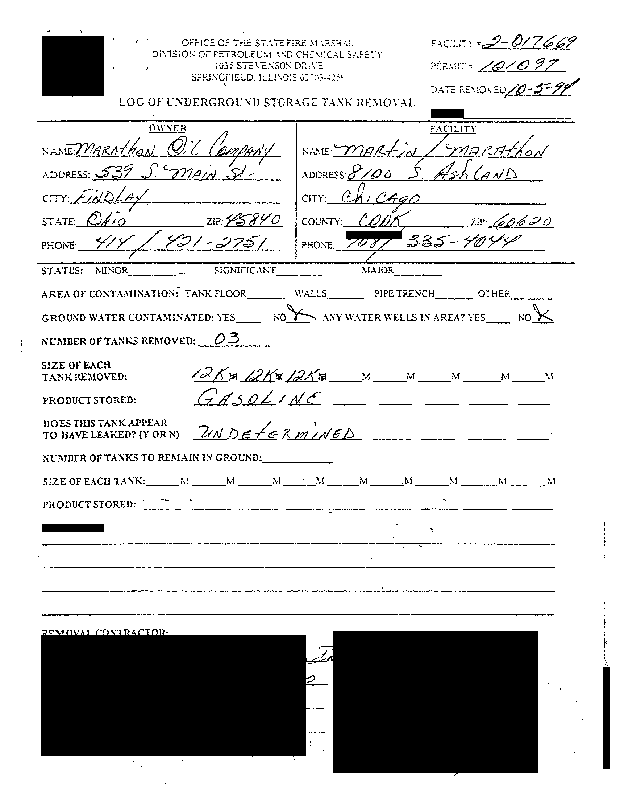 OFFICE OF THE STATE FIRE MARSHAL
DIVISION OF PETROLEUM AND CHEMICAL SAFETY
1035 STEVENSON DRIVE
SPRINGFIELD, ILLINOIS 62703-4259
FACILITY # 2-017669
PERMIT # 101097
DATE REMOVED 10-5-94
LOG OF UNDERGROUND STORAGE TANK REMOVAL
OWNER
NAME: MARAthon Oil Company
ADDRESS: 539 S. MAIN St.
CITY: FINDLAY
STATE: Ohio ZIP: 45840
PHONE: 414 / 421-2751
FACILITY
NAME: MARtin / MARAthON
ADDRESS: 8100 S. AshLAND
CITY: ChiCAgo
COUNTY: COOK ZIP: 60620
PHONE: 708/ 335-4044
STATUS: MINOR SIGNIFICANT MAJOR
AREA OF CONTAMINATION: TANK FLOOR WALLS PIPE TRENCH OTHER
GROUND WATER CONTAMINATED: YES NO X ANY WATER WELLS IN AREA? YES NO X
NUMBER OF TANKS REMOVED: 03
SIZE OF EACH
TANK REMOVED: 12K 12K 12K M M M M M
PRODUCT STORED: GASOLINE
DOES THIS TANK APPEAR
TO HAVE LEAKED? (Y OR N) UNDetERMINED
NUMBER OF TANKS TO REMAIN IN GROUND:
SIZE OF EACH TANK: M M M M M M M M M
PRODUCT STORED:
REMOVAL CONTRACTOR: